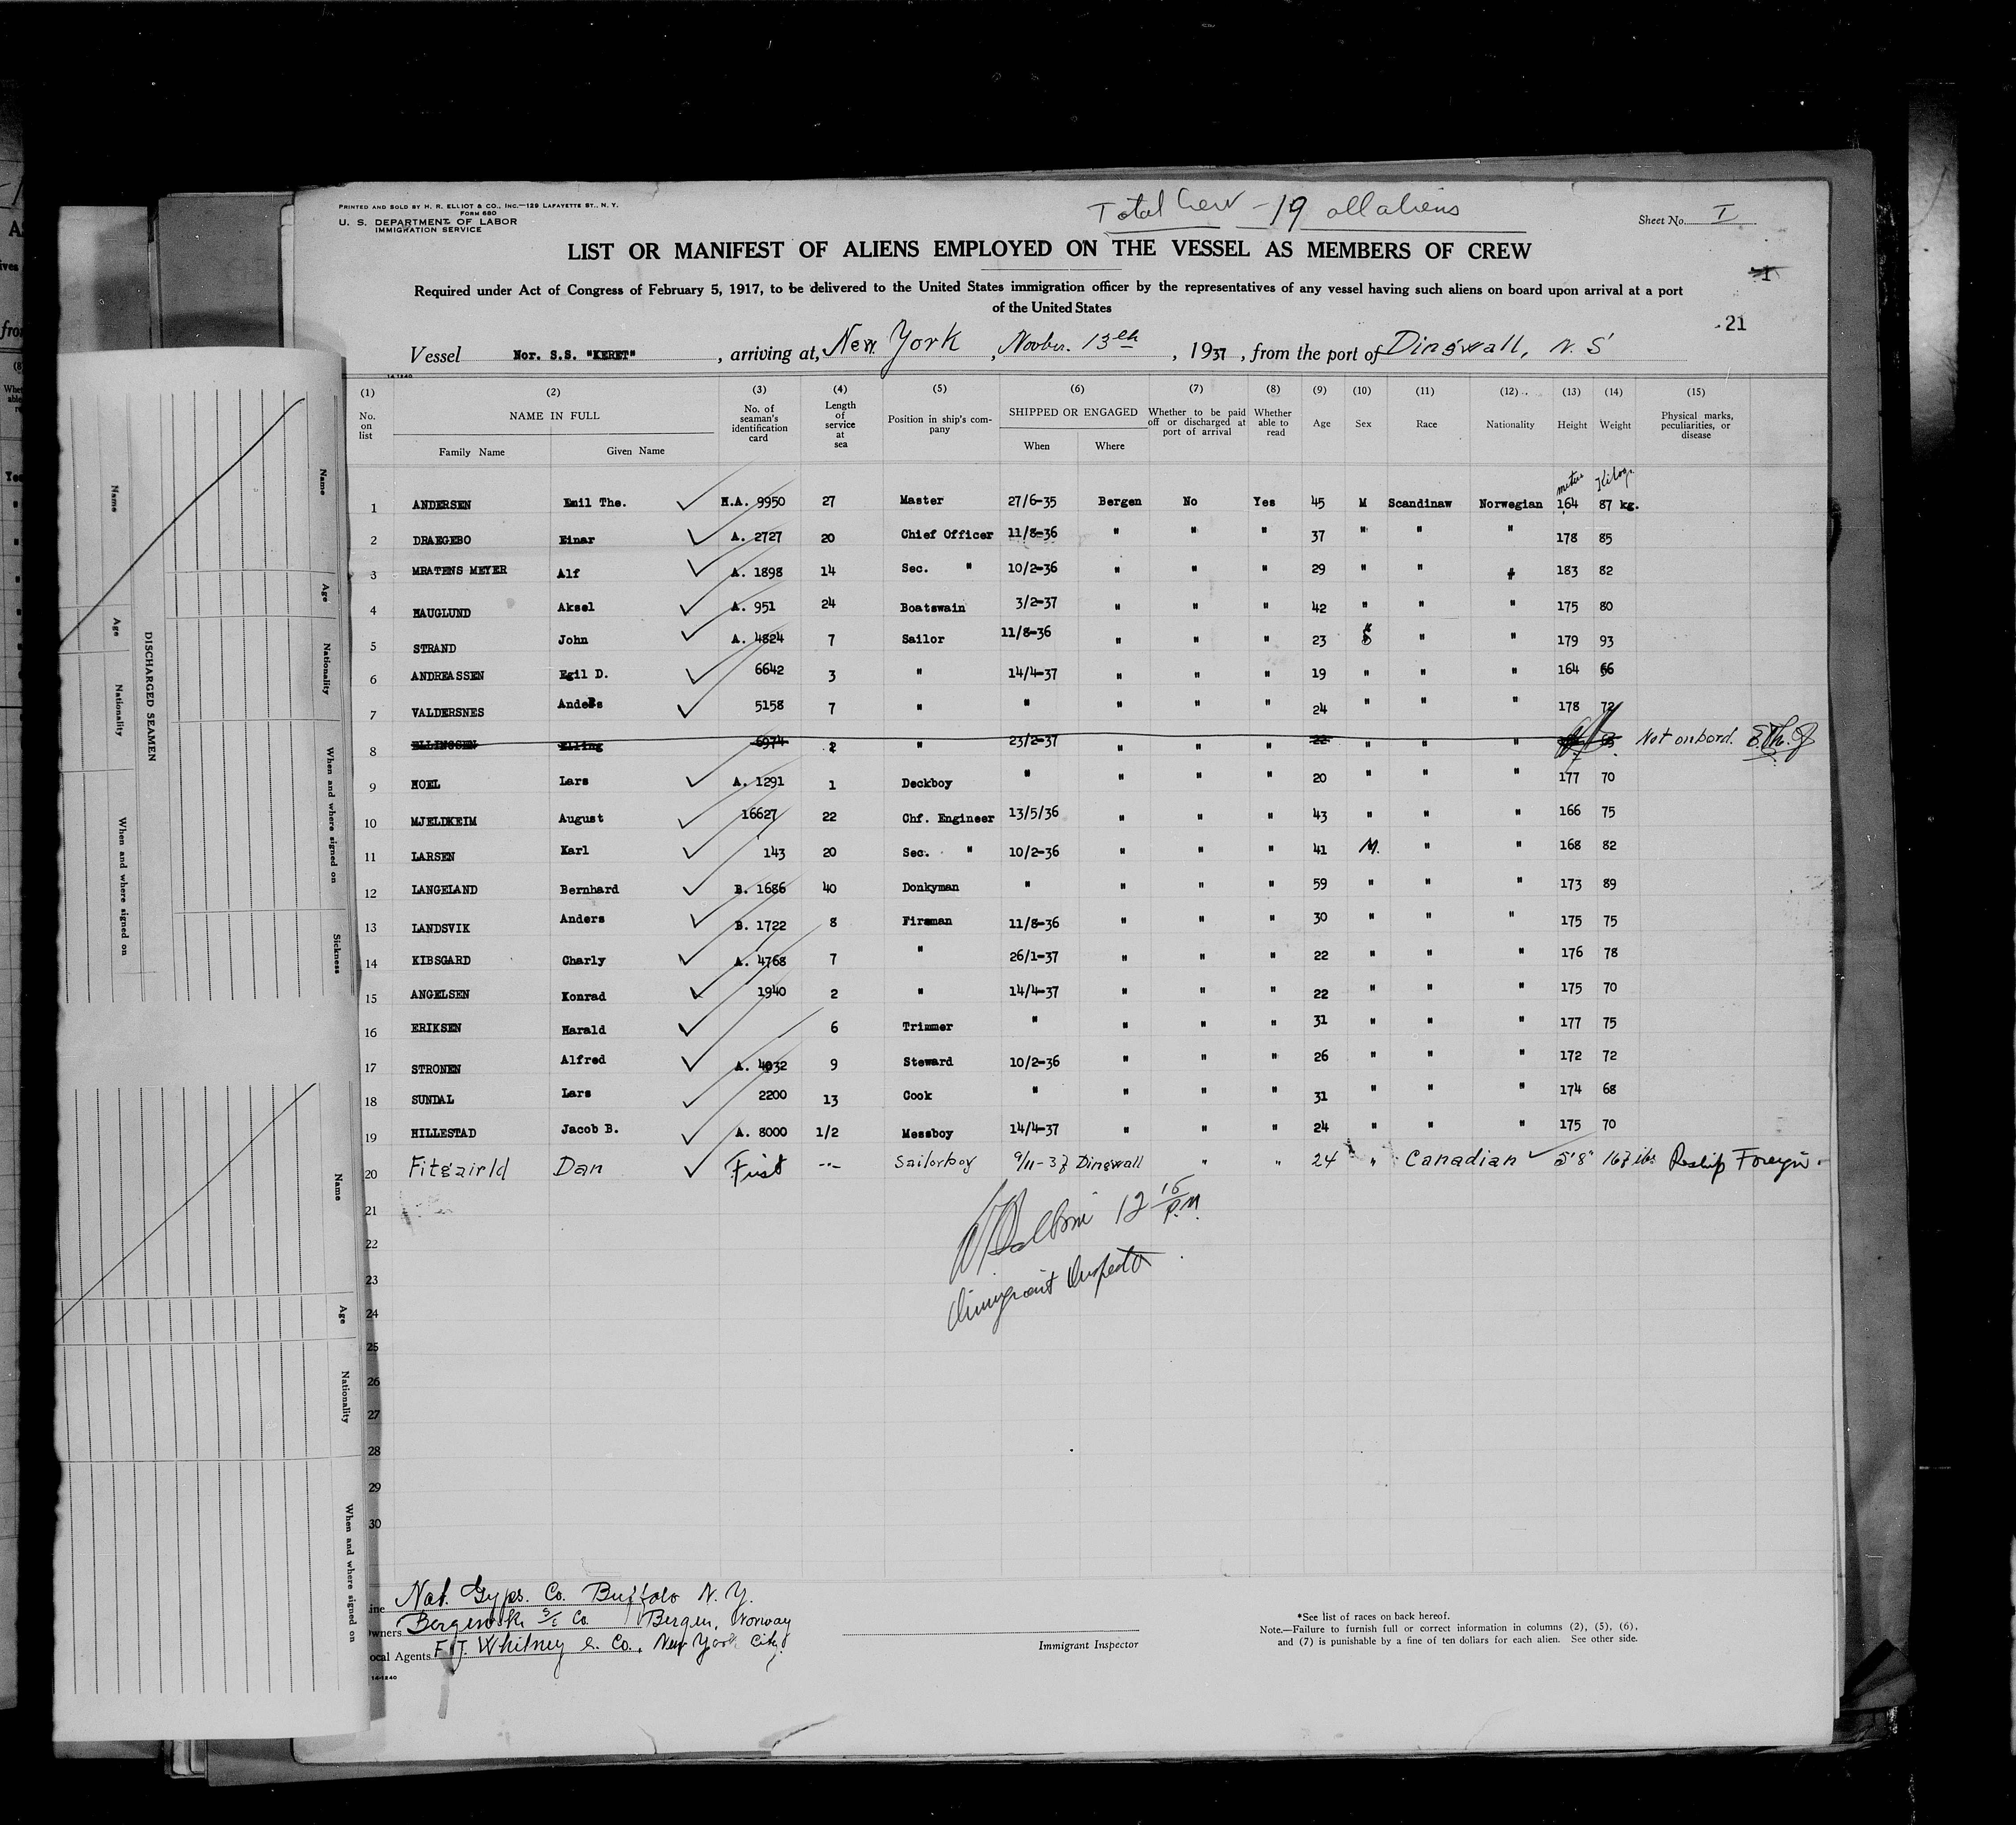 PRINTED AND SOLD BY H. R. ELLIOT & CO., INC.—129 LAFAYETTE ST., N. Y.
FORM 680
U. S. DEPARTMENT OF LABOR
IMMIGRATION SERVICE
Total Crew - 19 all aliens
Sheet No. I
LIST OR MANIFEST OF ALIENS EMPLOYED ON THE VESSEL AS MEMBERS OF CREW
1
Required under Act of Congress of February 5, 1917, to be delivered to the United States immigration officer by the representatives of any vessel having such aliens on board upon arrival at a port
of the United States
21
Vessel Nor. S.S. "KERET", arriving at, New York, Novber. 13th, 1937, from the port of Dingwall, N. S
14-1240
(1) (2) (3) (4) (5) (6) (7) (8) (9) (10) (11) (12) (13) (14) (15)
No. on list NAME IN FULL No. of seaman's identification card Length of service at sea Position in ship's company SHIPPED OR ENGAGED Whether to be paid off or discharged at port of arrival Whether able to read Age Sex Race Nationality Height Weight Physical marks, peculiarities, or disease
Family Name Given Name When Where
metres Kilogr.
1 ANDERSEN Emil The. H.A. 9950 27 Master 27/6-35 Bergen No Yes 45 M Scandinaw Norwegian 164 87 kg.
2 DRAEGEBO Einar A. 2727 20 Chief Officer 11/8-36 " " " 37 " " " 178 85
3 MRATENS MEYER Alf A. 1898 14 Sec. " 10/2-36 " " " 29 " " " 183 82
4 HAUGLUND Aksel A. 951 24 Boatswain 3/2-37 " " " 42 " " " 175 80
5 STRAND John A. 4824 7 Sailor 11/8-36 " " " 23 " " " 179 93
6 ANDREASSEN Egil D. 6642 3 " 14/4-37 " " " 19 " " " 164 66
7 VALDERSNES Anders 5158 7 " " " " " 24 " " " 178 72
8 ELLINGSEN Elling 6974 2 " 23/2-37 " " " 22 " " " Not onbord.
9 HOEL Lars A. 1291 1 Deckboy " " " " 20 " " " 177 70
10 MJELDKEIM August 16627 22 Chf. Engineer 13/5/36 " " " 43 " " " 166 75
11 LARSEN Karl 143 20 Sec. " 10/2-36 " " " 41 M. " " 168 82
12 LANGELAND Bernhard B. 1686 40 Donkyman " " " " 59 " " " 173 89
13 LANDSVIK Anders B. 1722 8 Fireman 11/8-36 " " " 30 " " " 175 75
14 KIBSGARD Charly A. 4768 7 " 26/1-37 " " " 22 " " " 176 78
15 ANGELSEN Konrad 1940 2 " 14/4-37 " " " 22 " " " 175 70
16 ERIKSEN Harald 6 Trimmer " " " " 31 " " " 177 75
17 STRONEN Alfred A. 4032 9 Steward 10/2-36 " " " 26 " " " 172 72
18 SUNDAL Lars 2200 13 Cook " " " " 31 " " " 174 68
19 HILLESTAD Jacob B. A. 8000 1/2 Messboy 14/4-37 " " " 24 " " " 175 70
20 Fitgairld Dan First --- Sailorboy 9/11-37 Dingwall " " 24 " Canadian 5'8" 167 lbs Reship Foreign.
21
22
23
24
25
26
27
28
29
30
12 15 P.M.
Immigrant Inspector
Line Nat. Gyps. Co. Buffalo N. Y.
Owners Bergenske S/S Co. Bergen, Norway
Local Agents F.J. Whitney & Co., New York City
14-1240
Immigrant Inspector
*See list of races on back hereof.
Note.—Failure to furnish full or correct information in columns (2), (5), (6),
and (7) is punishable by a fine of ten dollars for each alien. See other side.
DISCHARGED SEAMEN
Name Age Nationality When and where signed on
Name Age Nationality When and where signed on Sickness
Name Age Nationality When and where signed on